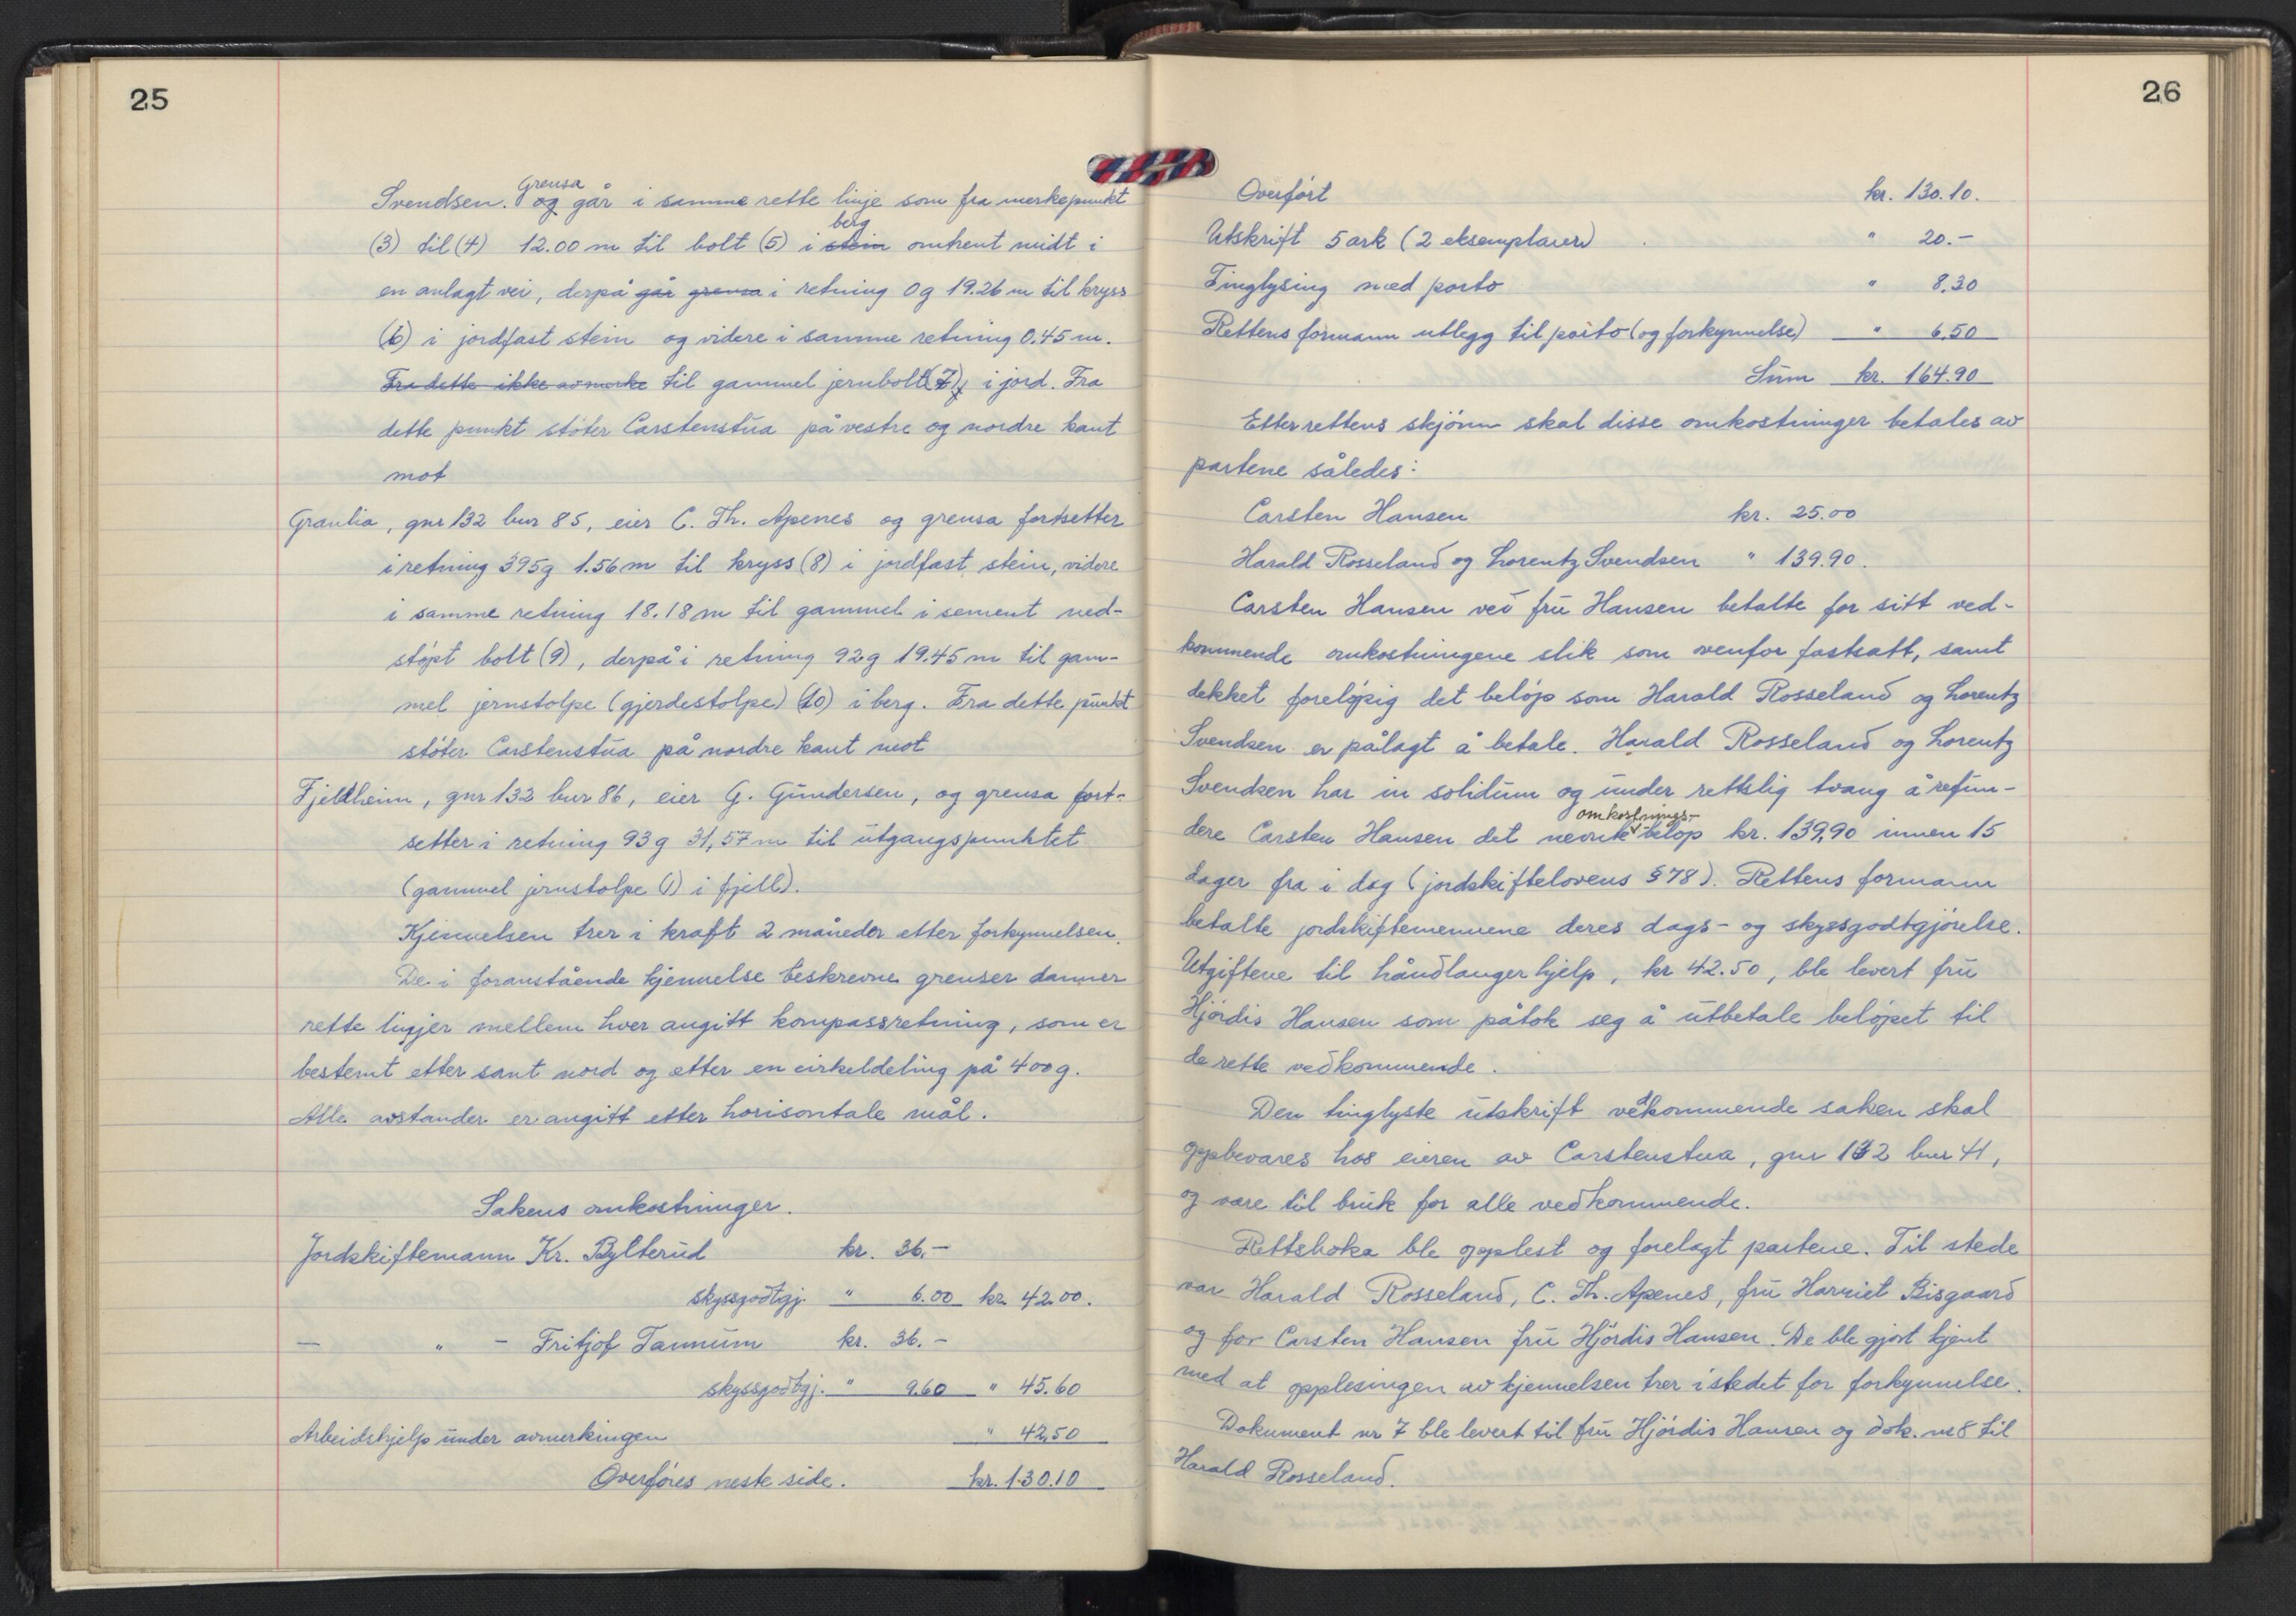 25
Grensa
Svendsen. og går i samme rette linje som fra merkepunkt
berg
(3) til (4) 12.00 m til bolt (5) i stein omtrent midt i
en anlagt vei, derpå går grensa i retning 0g 19.26 m til kryss
(6) i jordfast stein og videre i samme retning 0.45 m.
Fra dette ikke avmerke til gammel jernbolt (7), i jord. Fra
dette punkt støter Carstenstua på vestre og nordre kant
mot
Granlia, gnr 132 bnr 85, eier C. Th. Apenes og grensa fortsetter
i retning 395g 1.56 m til kryss (8) i jordfast stein, videre
i samme retning 18.18 m til gammel i sement ned-
støpt bolt (9), derpå i retning 92g 19.45 m til gam-
mel jernstolpe (gjerdestolpe) (10) i berg. Fra dette punkt
støter Carstenstua på nordre kant mot
Fjeldheim, gnr 132 bnr 86, eier G. Gundersen, og grensa fort-
setter i retning 93g 31,57 m til utgangspunktet
(gammel jernstolpe (1) i fjell).
Kjennelsen trer i kraft 2 måneder etter forkynnelsen.
De i foranstående kjennelse beskrevne grenser danner
rette linjer mellem hver angitt kompassretning, som er
bestemt etter sant nord og etter en cirkeldeling på 400g.
Alle avstander er angitt etter horisontale mål.
Sakens omkostninger.
Jordskiftemann Kr. Bylterud kr. 36.-
skyssgodtgj. " 6.00 kr. 42.00.
— " — Fritjof Tannum kr. 36.-
skyssgodtgj. " 9.60 " 45.60
Arbeidshjelp under avmerkingen " 42,50
Overføres neste side. kr. 130.10
26
Overført kr. 130.10.
Utskrift 5 ark (2 eksemplarer) " 20.-
Tinglysing med porto " 8.30
Rettens formann utlegg til porto (og forkynnelse) " 6.50
Sum kr. 164.90
Etter rettens skjønn skal disse omkostninger betales av
partene således:
Carsten Hansen kr. 25.00
Harald Rosseland og Lorentz Svendsen " 139.90.
Carsten Hansen ved fru Hansen betalte for sitt ved-
kommende omkostningene slik som ovenfor fastsatt, samt
dekket foreløpig det beløp som Harald Rosseland og Lorentz
Svendsen er pålagt å betale. Harald Rosseland og Lorentz
Svendsen har in solidum og under rettslig tvang å refun-
omkostnings-
dere Carsten Hansen det nevnte beløp kr. 139,90 innen 15
dager fra i dag (jordskiftelovens § 78). Rettens formann
betalte jordskiftemennene deres dags- og skyssgodtgjørelse.
Utgiftene til håndlangerhjelp, kr 42.50, ble levert fru
Hjørdis Hansen som påtok seg å utbetale beløpet til
de rette vedkommende.
Den tinglyste utskrift vedkommende saken skal
oppbevares hos eieren av Carstenstua, gnr 132 bnr 41,
og være til bruk for alle vedkommende.
Rettsboka ble opplest og forelagt partene. Til stede
var Harald Rosseland, C. Th. Apenes, fru Harriet Bisgaard
og for Carsten Hansen fru Hjørdis Hansen. De ble gjort kjent
med at opplesingen av kjennelsen trer istedet for forkynnelse.
Dokument nr 7 ble levert til fru Hjørdis Hansen og dok. nr 8 til
Harald Rosseland.